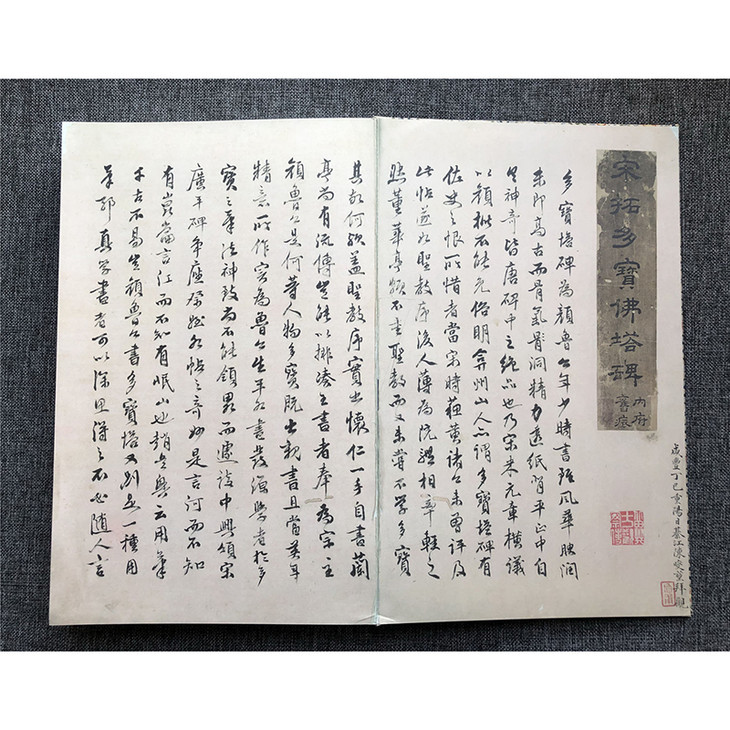 宋拓多寶佛塔碑
內府舊痕
咸豐丁巳重陽日綦江陳 拜觀
多寶塔碑為顏魯公年少時書雖風華腴潤
未即高古而骨氣影洞精力透紙背平正中自
具神奇皆唐碑中之絕品也乃宋米元章橫議
以顏 不能免俗明弇州山人亦謂多寶塔碑有
佐史之恨所惜者當宋時蘇黃諸公未曾評及
此帖遂如聖教序後人薄為院體相率輕之
然董華亭頗不重聖教而又未嘗不學多寶
其故何歟蓋聖教序實出懷仁一手自書蘭
亭尚有流傳豈能以排湊之書者奉為宗主
顏魯公是何等人物多寶既出親書且當其年
精意所作實為魯公生平初盡 學者於多
寶之筆法神致尚不能領畧而遽談中興頌宋
廣平碑爭座 帖之奇妙是言河而不知
有崑崙言江而不知有岷山也趙吳興云用筆
千古不易豈顏魯公書多寶塔又別是一種用
筆耶真學書者可以深思得之不必隨人言